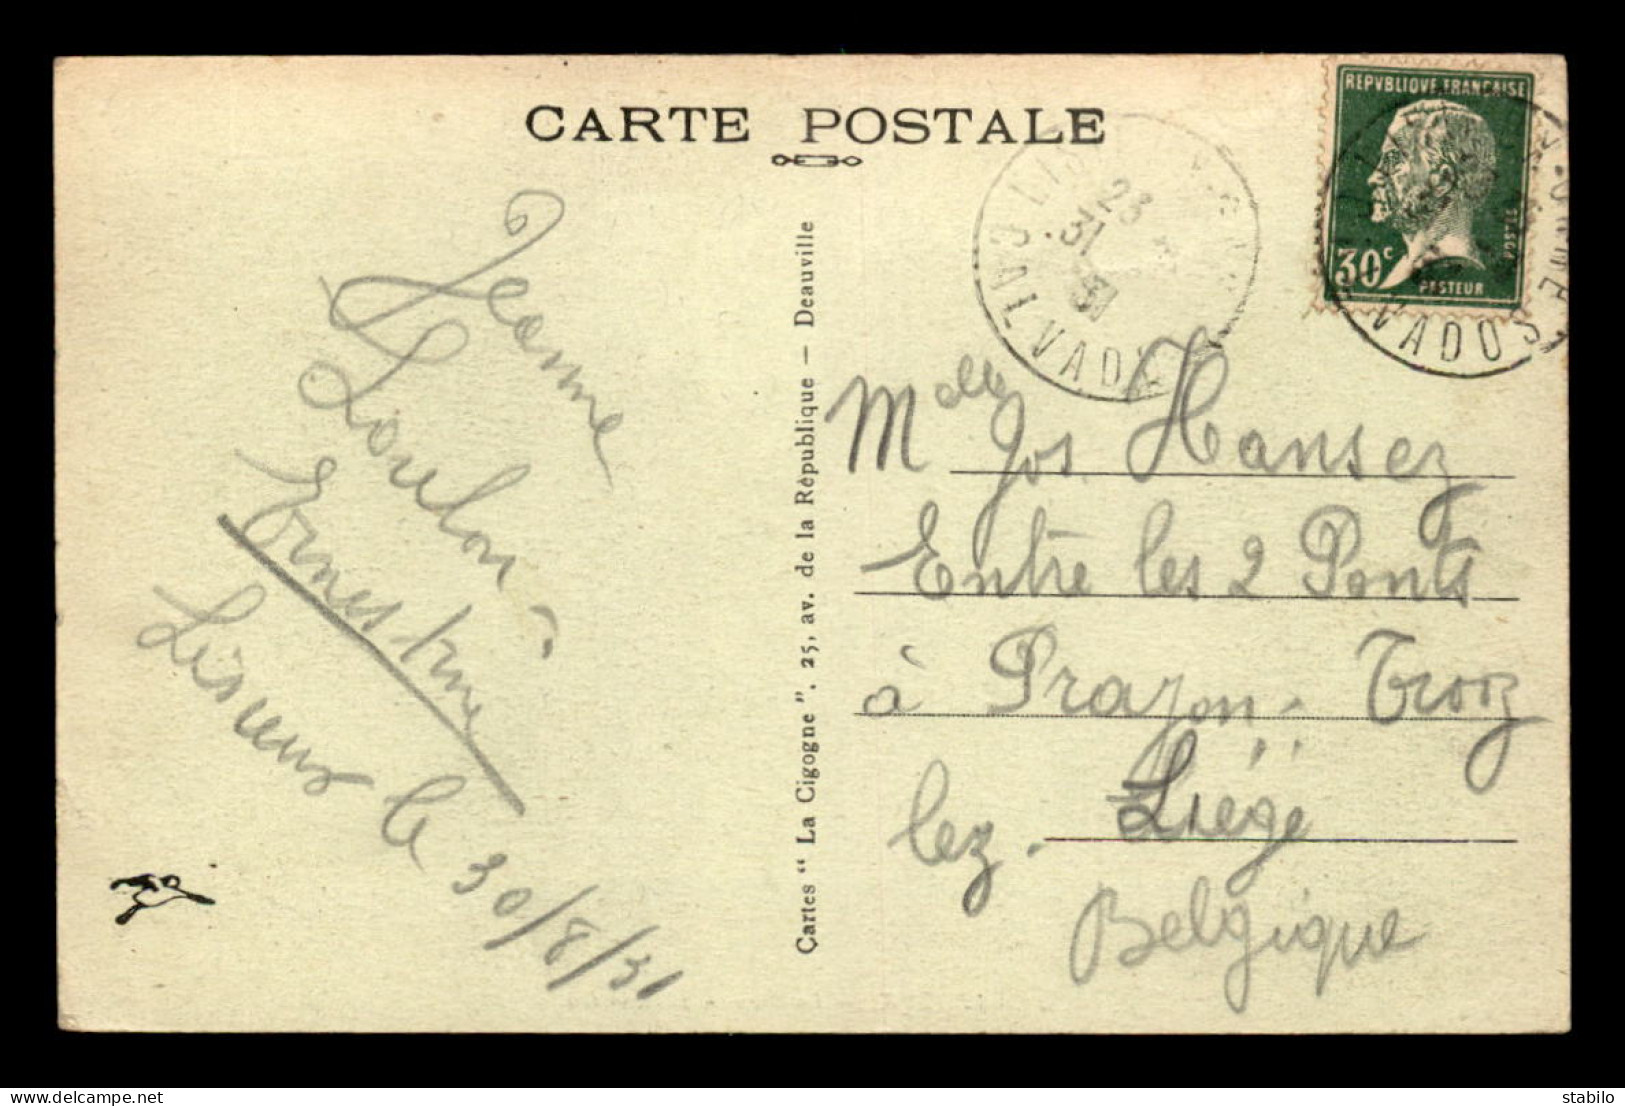 CARTE POSTALE
REPVBLIQUE FRANÇAISE
30c
POSTES
PASTEUR
LIS
CALVADOS
31
VADOS
Jeanne
Loulou
Ernestine
Lisieux le 30/8/31
Cartes “ La Cigogne ”. 25, av. de la République — Deauville
Mlle Jos. Hansez
Entre les 2 Ponts
à Prayon. Trooz
lez. Liége
Belgique
delcampe.net
stabilo